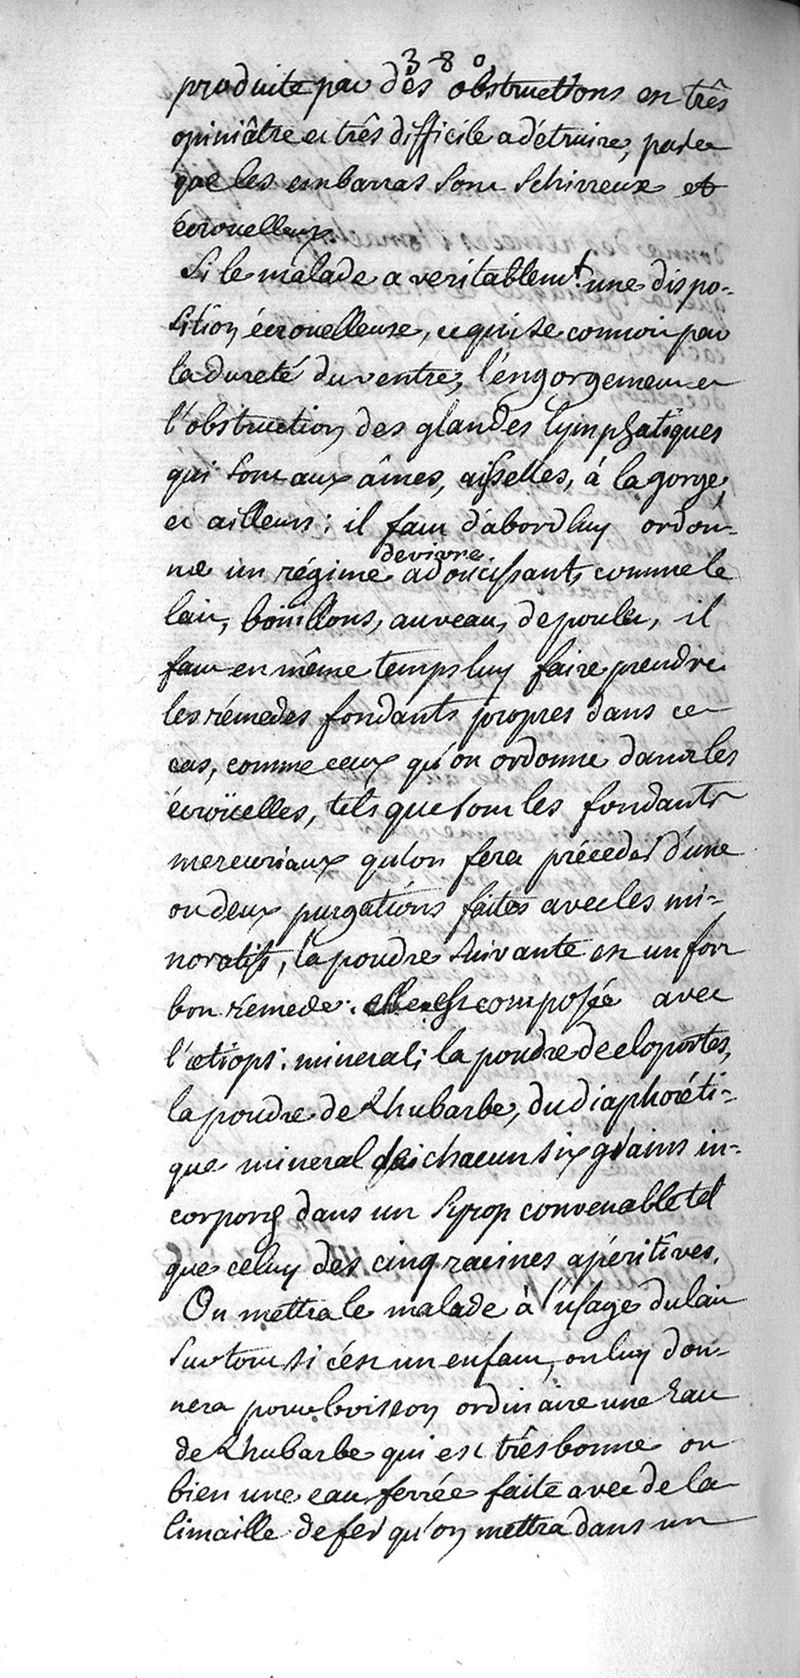 380
produite par dès obstructions est três
opiniâtre et três difficile a détruire, parce
que les embarras sont schirreux et
écrouelleux
Si le malade a veritablemt. une dispo-
sition écrouelleuse, ce qui se connoit par
la dureté du ventre, l'éngorgement et
l'obstruction des glandes lymphatiques
qui sont aux aînes, aisselles, à la gorge,
et ailleurs; il faut d'abord luy ordon-
ner un régime de vivre adoucissants comme le
lait, boüillons, au veau, de poulet, il
faut en même temps luy faire prendre
les rémedes fondants propres dans ce
cas, comme ceux qu'on ordonne dans les
écroüelles, tels que sont les fondants
mercuriaux qu'on fera préceder d'une
ou deux purgations faites avec les mi-
noratifs, la poudre suivante est un fort
bon remede. elle est composée avec
l'œtiops: mineral; la poudre de cloportes,
la poudre de Rhubarbe, du diaphoréti-
que mineral de chacun six grains in-
corporés dans un syrop convenable tel
que celuy des cinq racines apéritives.
On mettra le malade à l'usage du lait
surtout si c'ést un enfant, on luy don-
nera pour boisson ordinaire une Eau
de Rhubarbe qui est três bonne ou
bien une eau ferrée faite avec de la
limaille de fer qu'on mettra dans un